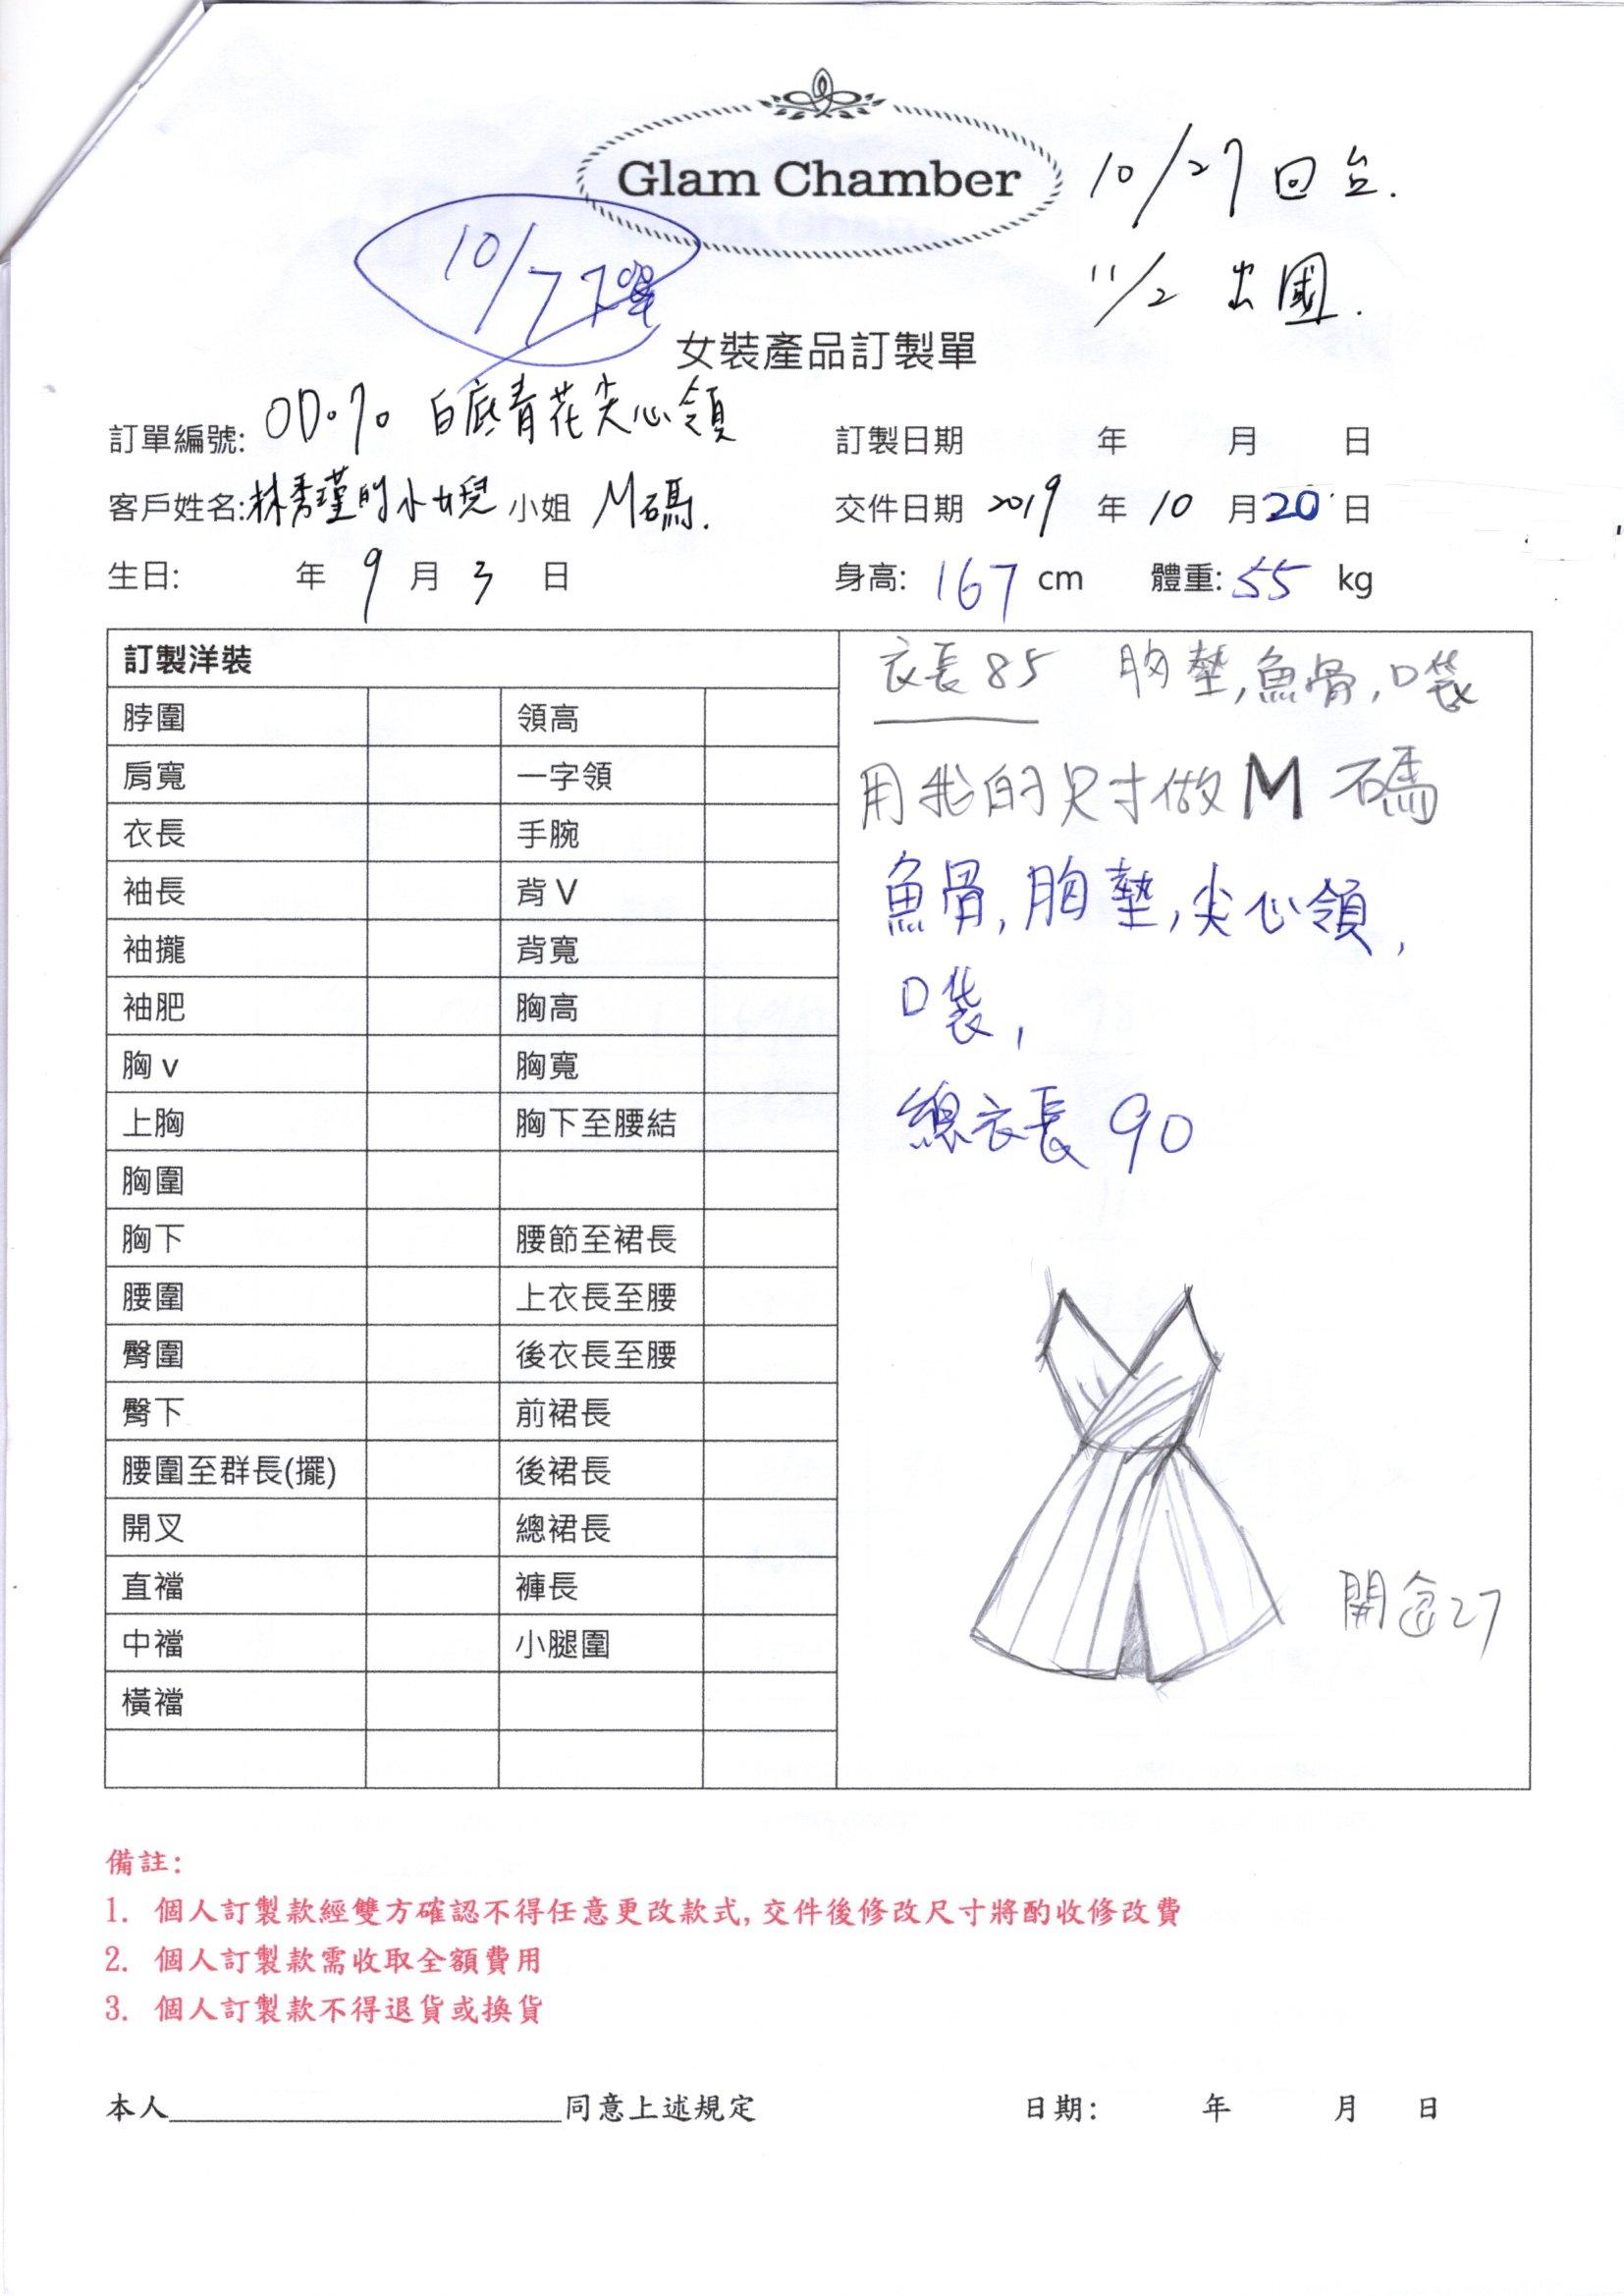 Glam Chamber
10/27 回台.
11/2 出國.
10/7 下單
女裝產品訂製單
訂單編號: OD070 白底青花尖心領
訂製日期 年 月 日
客戶姓名: 林秀瑾的小女兒 小姐 M碼.
交件日期 2019 年 10 月 20 日
生日: 年 9 月 3 日
身高: 167 cm 體重: 55 kg
訂製洋裝
脖圍 領高
肩寬 一字領
衣長 手腕
袖長 背 V
袖攏 背寬
袖肥 胸高
胸 v 胸寬
上胸 胸下至腰結
胸圍
胸下 腰節至裙長
腰圍 上衣長至腰
臀圍 後衣長至腰
臀下 前裙長
腰圍至群長(擺) 後裙長
開叉 總裙長
直襠 褲長
中襠 小腿圍
橫襠
衣長 85 胸墊,魚骨,口袋
用我的尺寸做 M 碼
魚骨,胸墊,尖心領,
口袋,
總衣長 90
27
備註:
1. 個人訂製款經雙方確認不得任意更改款式,交件後修改尺寸將酌收修改費
2. 個人訂製款需收取全額費用
3. 個人訂製款不得退貨或換貨
本人 同意上述規定 日期: 年 月 日